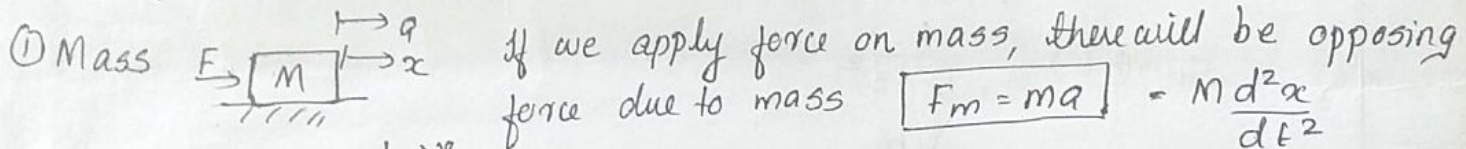 ① Mass F M a x If we apply force on mass, there will be opposing
force due to mass Fm = ma = M d²x/dt²